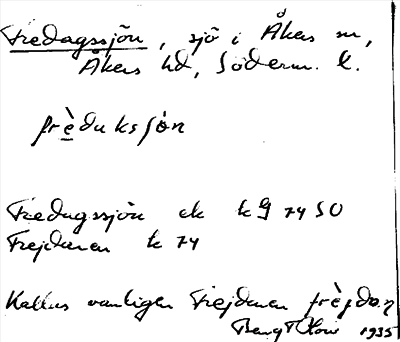 Fredagssjön, sjö i Åkers sn,
Åkers hd, Söderm. l.
frèduksjön
Fredagssjön ek kg 74 SO
Frejdanen k 74
Kallas vanligen Frejdanen frèjdan
Bengt 1935